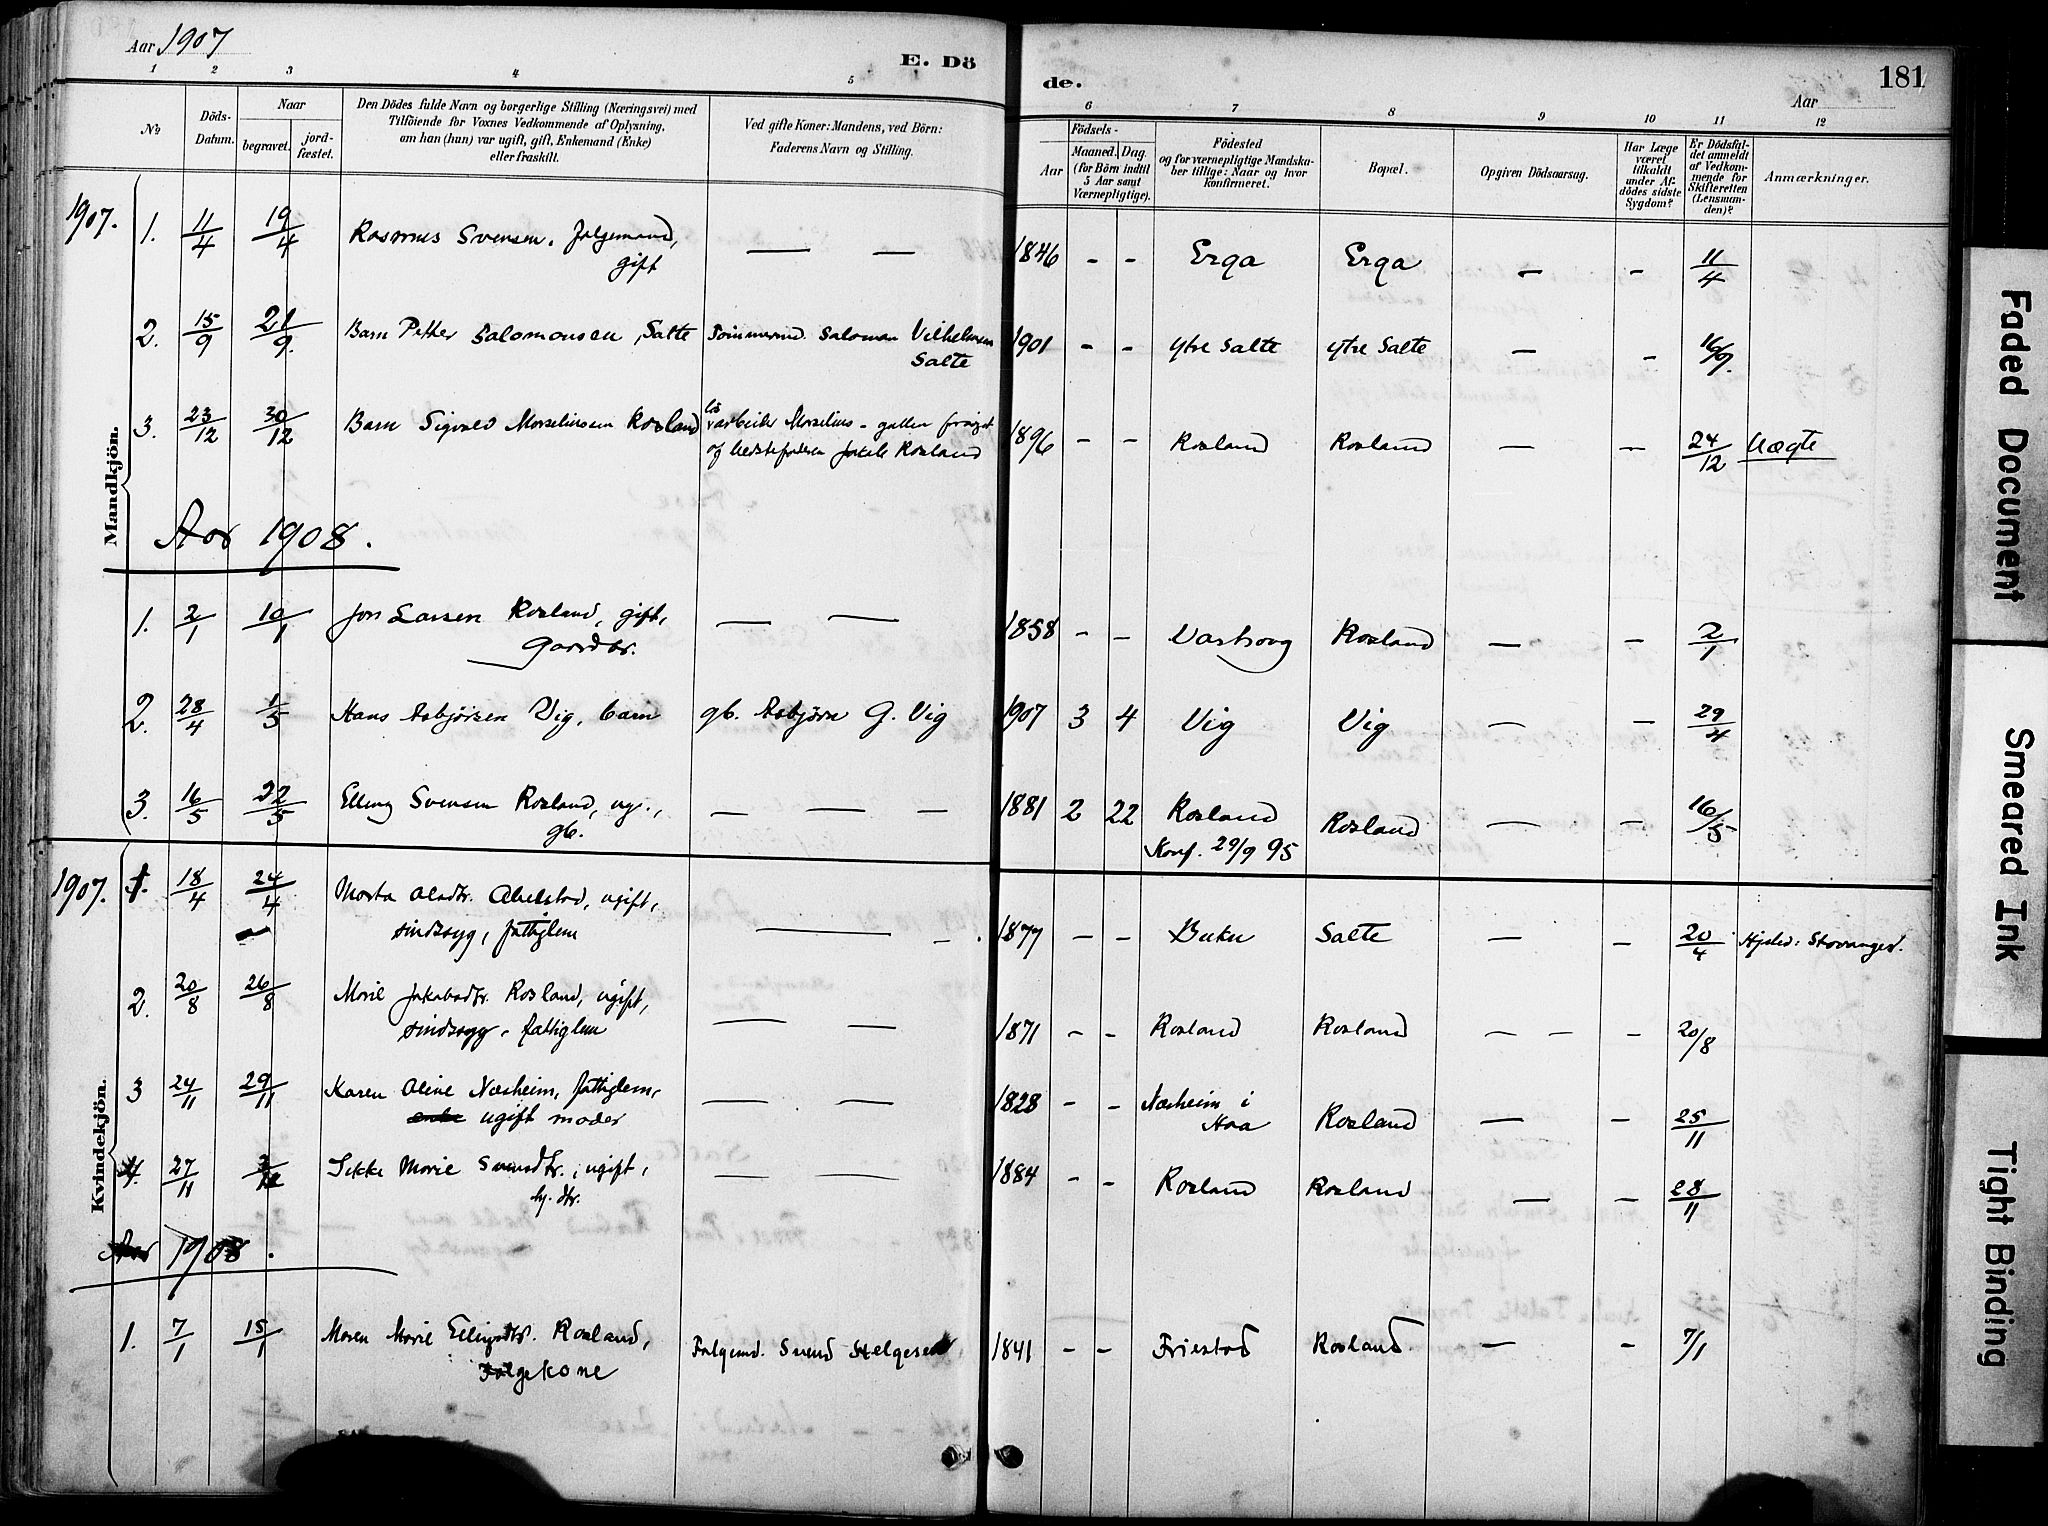 Aar 1907
E. Dö
de.
181
Aar
1 2 3 4 5 6 7 8 9 10 11 12
No
Döds-
Datum.
Naar
begravet.
jord-
fæstet.
Den Dödes fulde Navn og borgerlige Stilling (Næringsvei) med
Tilföiende for Voxnes Vedkommende af Oplysning,
om han (hun) var ugift, gift, Enkemand (Enke)
eller fraskilt.
Ved gifte Koner: Mandens, ved Börn:
Faderens Navn og Stilling.
Födsels-
Aar
Maaned. Dag.
(for Börn indtil
5 Aar samt
Værnepligtige).
Födested
og for værnepligtige Mandska-
ber tillige: Naar og hvor
konfirmeret.
Bopæl.
Opgiven Dödsaarsag.
Har Læge
været
tilkaldt
under Af-
dödes sidste
Sygdom?
Er Dödsfal-
det anmeldt
af Vedkom-
mende for
Skifteretten
(Lensman-
den)?
Anmærkninger.
Mandkjön.
1907. 1. 11/4 19/4 Rasmus Svensen, folgemand, — — 1846 - - Erga Erga — - 11/4
gift
2. 15/9 21/9. Barn Petter Salomonsen, Salte Tømmermd. Salomon Vilhelmsen 1901 - - ytre Salte ytre Salte — - 16/9.
Salte
3. 23/12 30/12 Barn Sigvald Morseliussen Rosland løs
arbeider Morselius - 1896 - - Rosland Rosland — - 24/12 Uægte
og bedstefaderen Rosland
Aar 1908.
1. 2/1 10/1 Jon Larsen Rosland, gift, — — 1858 - - Varhoug Rosland — - 2/1
Gaardbr.
2. 28/4 1/5 Hans Asbjørsen Vig, barn gb. Asbjørn G. Vig 1907 3 4 Vig Vig — - 29/4
3. 16/5 22/5 Elling Svensen Rosland, ug., — — — 1881 2 22 Rosland Rosland — - 16/5
gb.
Konf. 29/9 95
Kvindekjön.
1907. 1. 18/4 24/4 Marta Olsdtr. Obrestad, ugift, — 1877 - - Salte — - 20/4 Stavanger.
sindssyg, fattiglem
2. 20/8 26/8 Marie Jakobsdtr. Rosland, ugift, — — 1871 - - Rosland Rosland — — - 20/8
sindssyg, fattiglem
3 24/11 29/11 Karen Oline Næsheim, fattiglem, — — 1828 - - Næsheim i Rosland — - 25/11
enke ugift moder
Haa
4. 27/11 Sikke Marie Svensdtr., ugift, — — 1884 - - Rosland Rosland — - 28/11
hj. dtr.
Aar 1908.
1. 7/1 15/1 Maren Marie Ellingsdtr. Rosland, Folgemd. Svend Helgesen 1841 - - Friestad Rosland. — - 7/1
Folgekone
Faded Document
Smeared Ink
Tight Binding